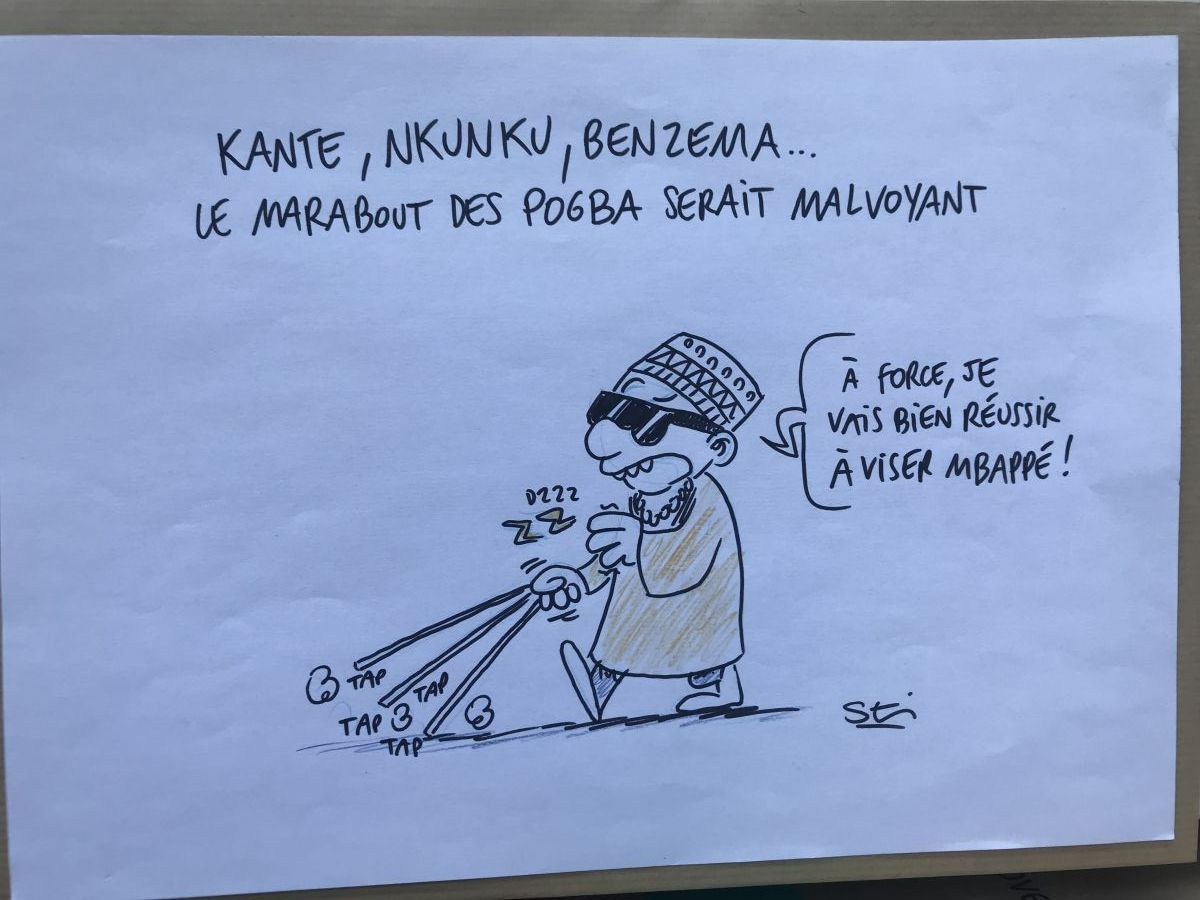 KANTE, NKUNKU, BENZEMA...
LE MARABOUT DES POGBA SERAIT MALVOYANT
À FORCE, JE
VAIS BIEN RÉUSSIR
À VISER MBAPPÉ !
DZZZ
TAP
TAP
TAP
TAP
Sti